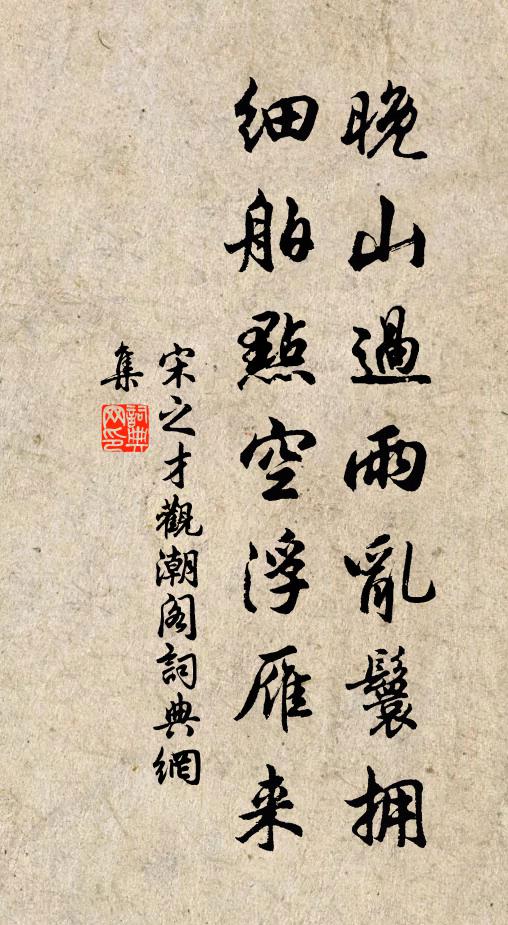 晚山過雨亂鬟拥
細舶點空浮雁来
宋之才觀潮阁詞典網
集
詞典
网印